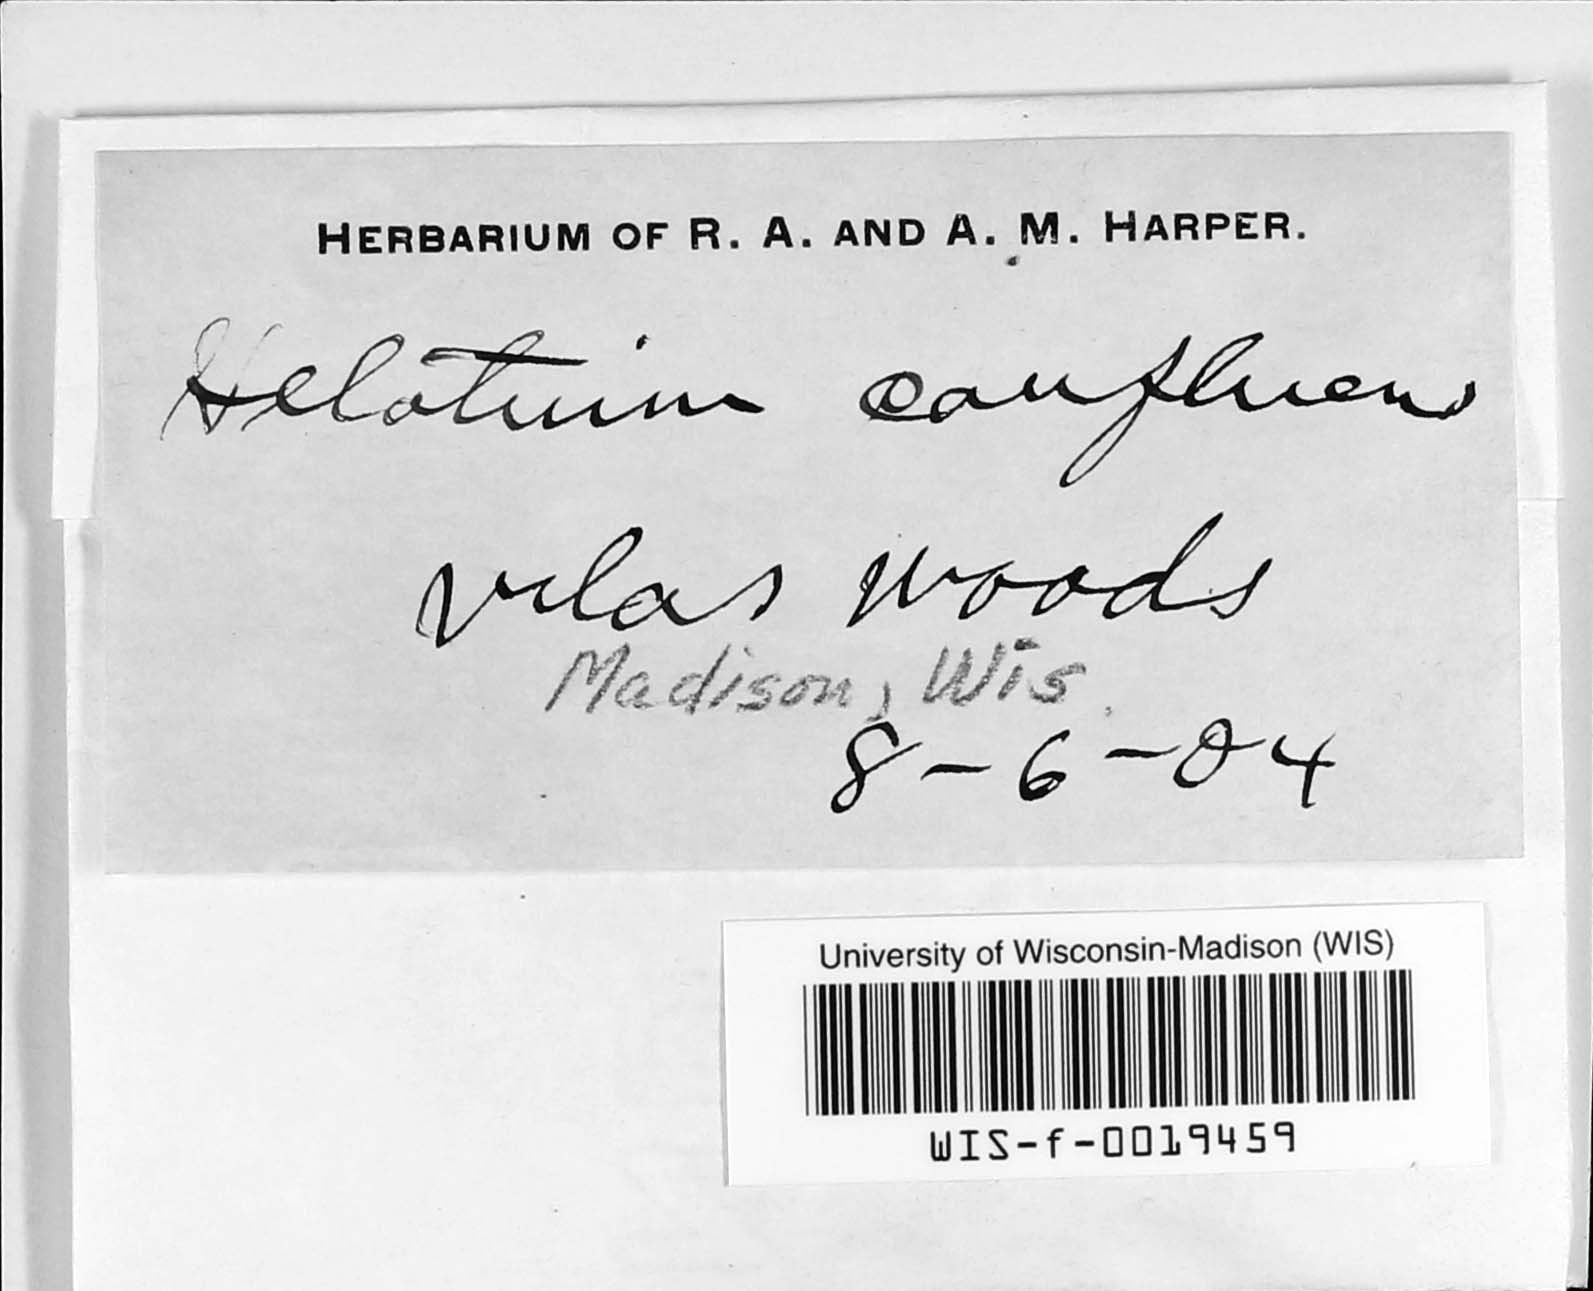 HERBARIUM OF R. A. AND A. M. HARPER.
Helotium confluens
Vilas woods
Madison, Wis.
8-6-04
University of Wisconsin-Madison (WIS)
WIS-f-0019459